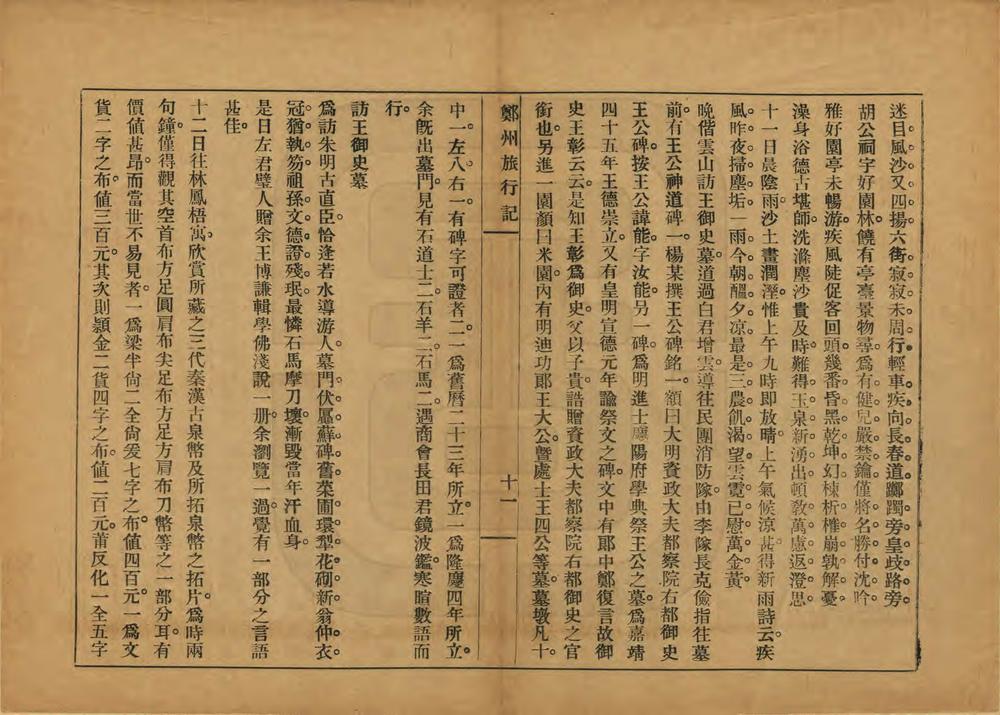 迷目風沙又四揚。六街寂寂未周行。輕車疾向長春道。躑躅旁皇歧路旁。
胡公祠宇好園林。饒有亭臺景物尋。爲有健兒嚴禁鑰。僅將名勝付沈吟。
雅好園亭未暢游。疾風陡促客回頭。幾番昏黑乾坤幻。棟析榱崩孰解憂。
澡身浴德古堪師。洗滌塵沙貴及時。難得玉泉新湧出。頓敎萬慮返澄思。
十一日晨陰雨沙土晝潤溼。惟上午九時即放晴。上午氣候涼甚。得新雨詩云。疾
風昨夜掃塵垢。一雨今朝醞夕凉。最是三農飢渴望。雲霓已慰萬金黃。
晚偕雲山訪王御史墓。道過白君增雲。導往民團消防隊。由李隊長克儉指往墓
前。有王公神道碑一。楊某撰王公碑銘一。額曰大明資政大夫都察院右都御史
王公碑。按王公諱能字汝能。另一碑。爲明進士廬陽府學典祭王公之墓。爲嘉靖
四十五年王德崇立。又有皇明宣德元年諭祭文之碑。文中有郎中鄭復言故御
史王彰云云。是知王彰爲御史。父以子貴。誥贈資政大夫都察院右都御史之官
銜也。另進一園。顏曰米園。內有明迪功郎王大公。曁處士王四公等墓。墓墩凡十。
鄭州旅行記 十一
中一。左八。右一。有碑字可證者二。一爲舊曆二十三年所立。一爲隆慶四年所立。
余旣出墓門。見有石道士二。石羊二。石馬二。遇商會長田君鏡波鑑。寒暄數語而
行。
訪王御史墓
爲訪朱明古直臣。恰逢若水導游人。墓門伏屭蘇碑舊。菜圃環犁花砌新。翁仲衣。
冠猶執笏。祖孫文德證殘珉。最憐石馬摩刀壞。漸毀當年汗血身。
是日左君璧人贈余王博謙輯學佛淺說一册。余瀏覽一過。覺有一部分之言語
甚佳。
十二日往林鳳梧寓。欣賞所藏之三代秦漢古泉幣及所拓泉幣之拓片。爲時兩
句鐘。僅得觀其空首布方足圓肩布尖足布方足方肩布刀幣等之一部分耳。有
價値甚昂而當世不易見者。一爲梁半尙二全尙爰七字之布。値四百元。一爲文
貨二字之布。値三百元。其次則潁金二貨四字之布。値二百元。莆反化一全五字